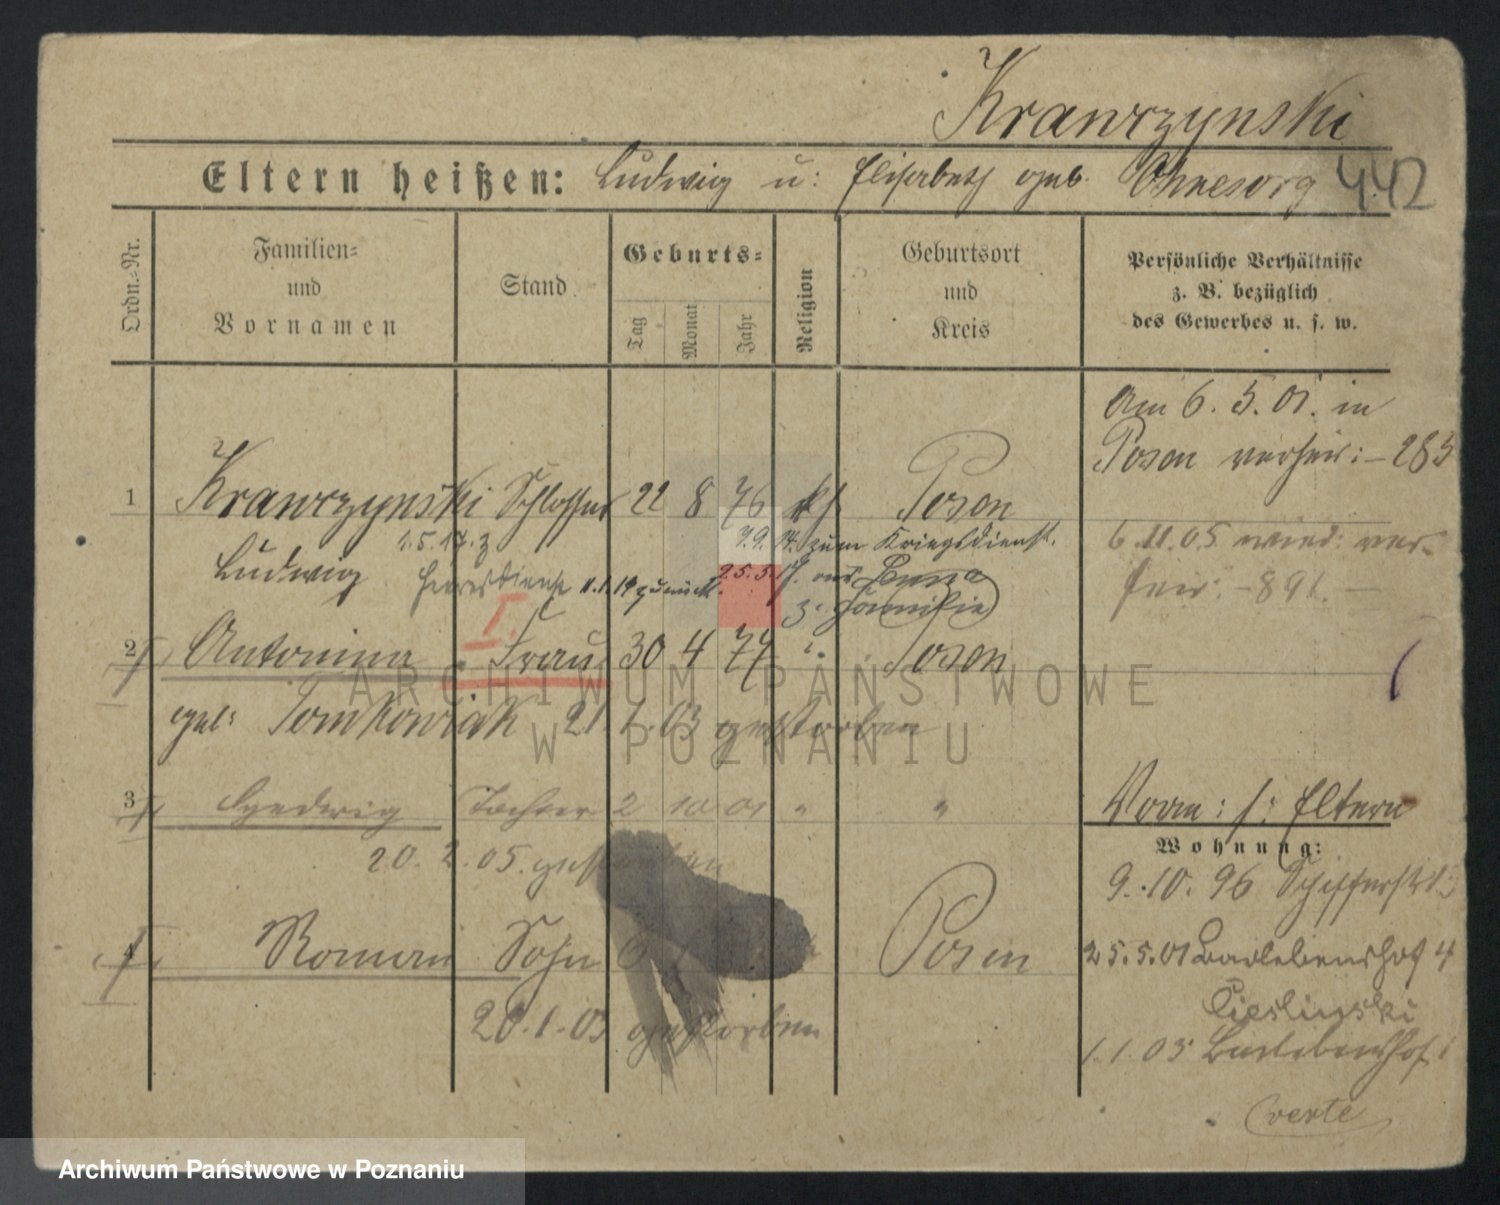 Krawczynski
Eltern heißen: Ludwig u: Elisabeth geb. Ohnesorg 442
Ordn.-Nr.
Familien-
und
Vornamen
Stand
Geburts-
Tag
Monat
Jahr
Religion
Geburtsort
und
Kreis
Persönliche Verhältnisse
z. B. bezüglich
des Gewerbes u. s. w.
Am 6. 5. 01. in
Posen verheir: – 283
1 Krawczynski Schlosser 22 8 76 kt. Posen
7.9.14. zum Kriegsdienst.
6.11.05 wied: ver-
1.5.17. z
Ludwig Heeresdienst 11.1.19 zurück. 2.5.5.17. aus
heir. – 891. –
z. Familie
I.
2 Antonina Frau 30 4 77 Posen
geb: Tomkowiak 21.1.03 gestorben
ARCHIWUM PAŃSTWOWE
W POZNANIU
3 Hedwig Tochter 2 10 01 " "
Vorm: s: Eltern
Wohnung:
20. 2. 05. gestorben
9. 10. 96 Schifferstr.
4 Roman Sohn Posen
25.5.01 Bartlebenshof 4
Cieslinski
20.1.03 gestorben
1.1.05 Bartlebenshof
verte
Archiwum Państwowe w Poznaniu